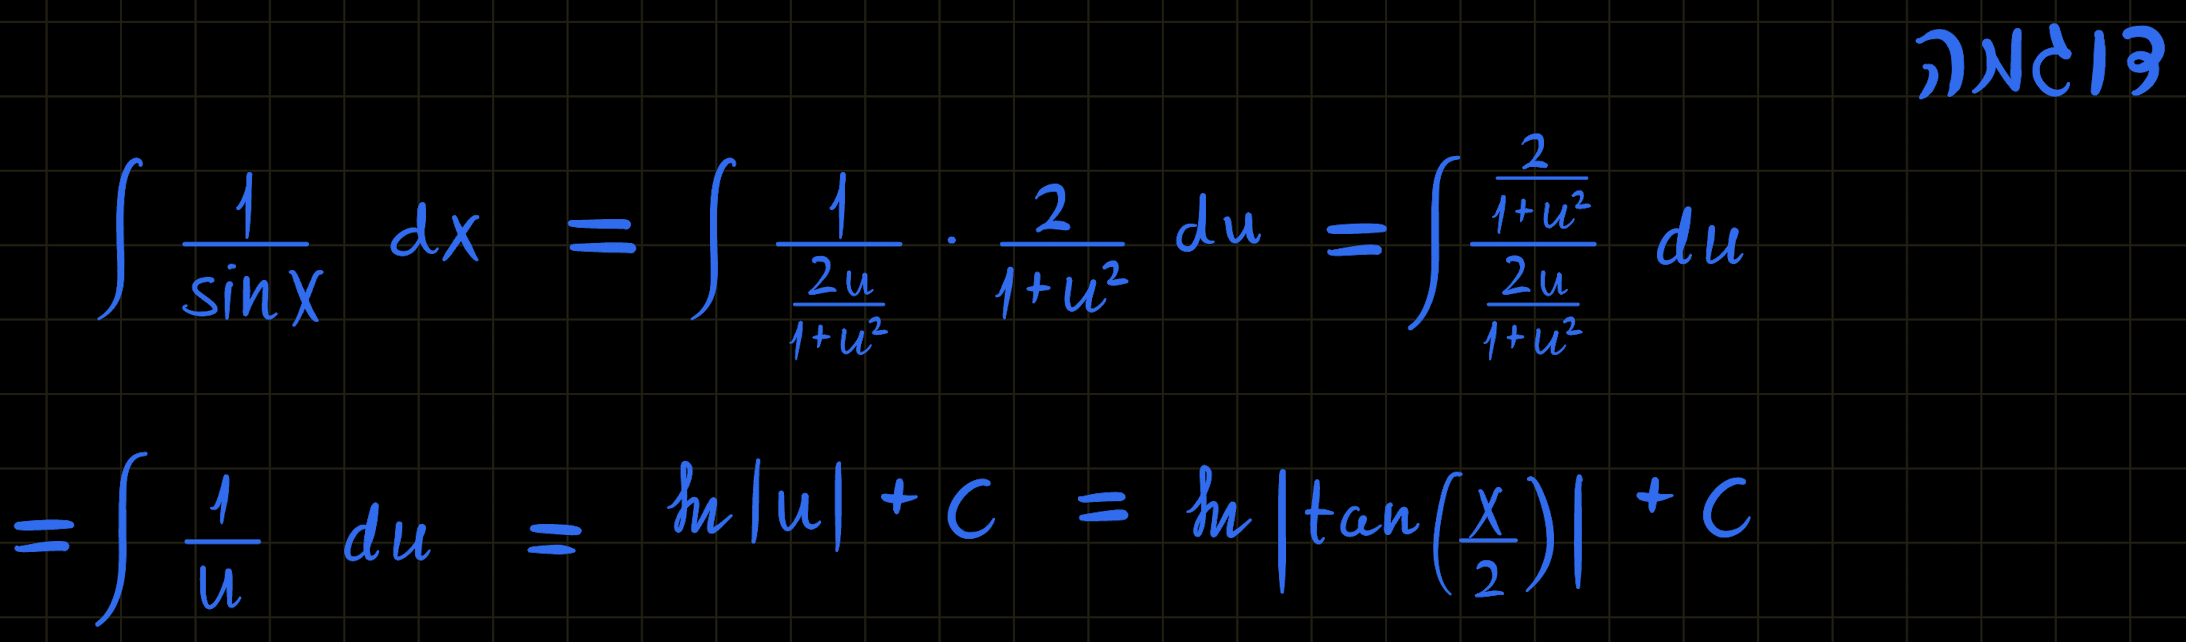 דוגמה
$\int \frac{1}{\sin x} dx = \int \frac{1}{\frac{2u}{1+u^2}} \cdot \frac{2}{1+u^2} du = \int \frac{\frac{2}{1+u^2}}{\frac{2u}{1+u^2}} du$
$= \int \frac{1}{u} du = \ln|u| + C = \ln\left|\tan\left(\frac{x}{2}\right)\right| + C$